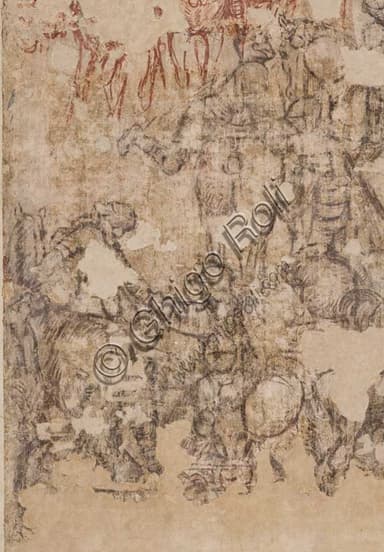 © Ghigo Roli